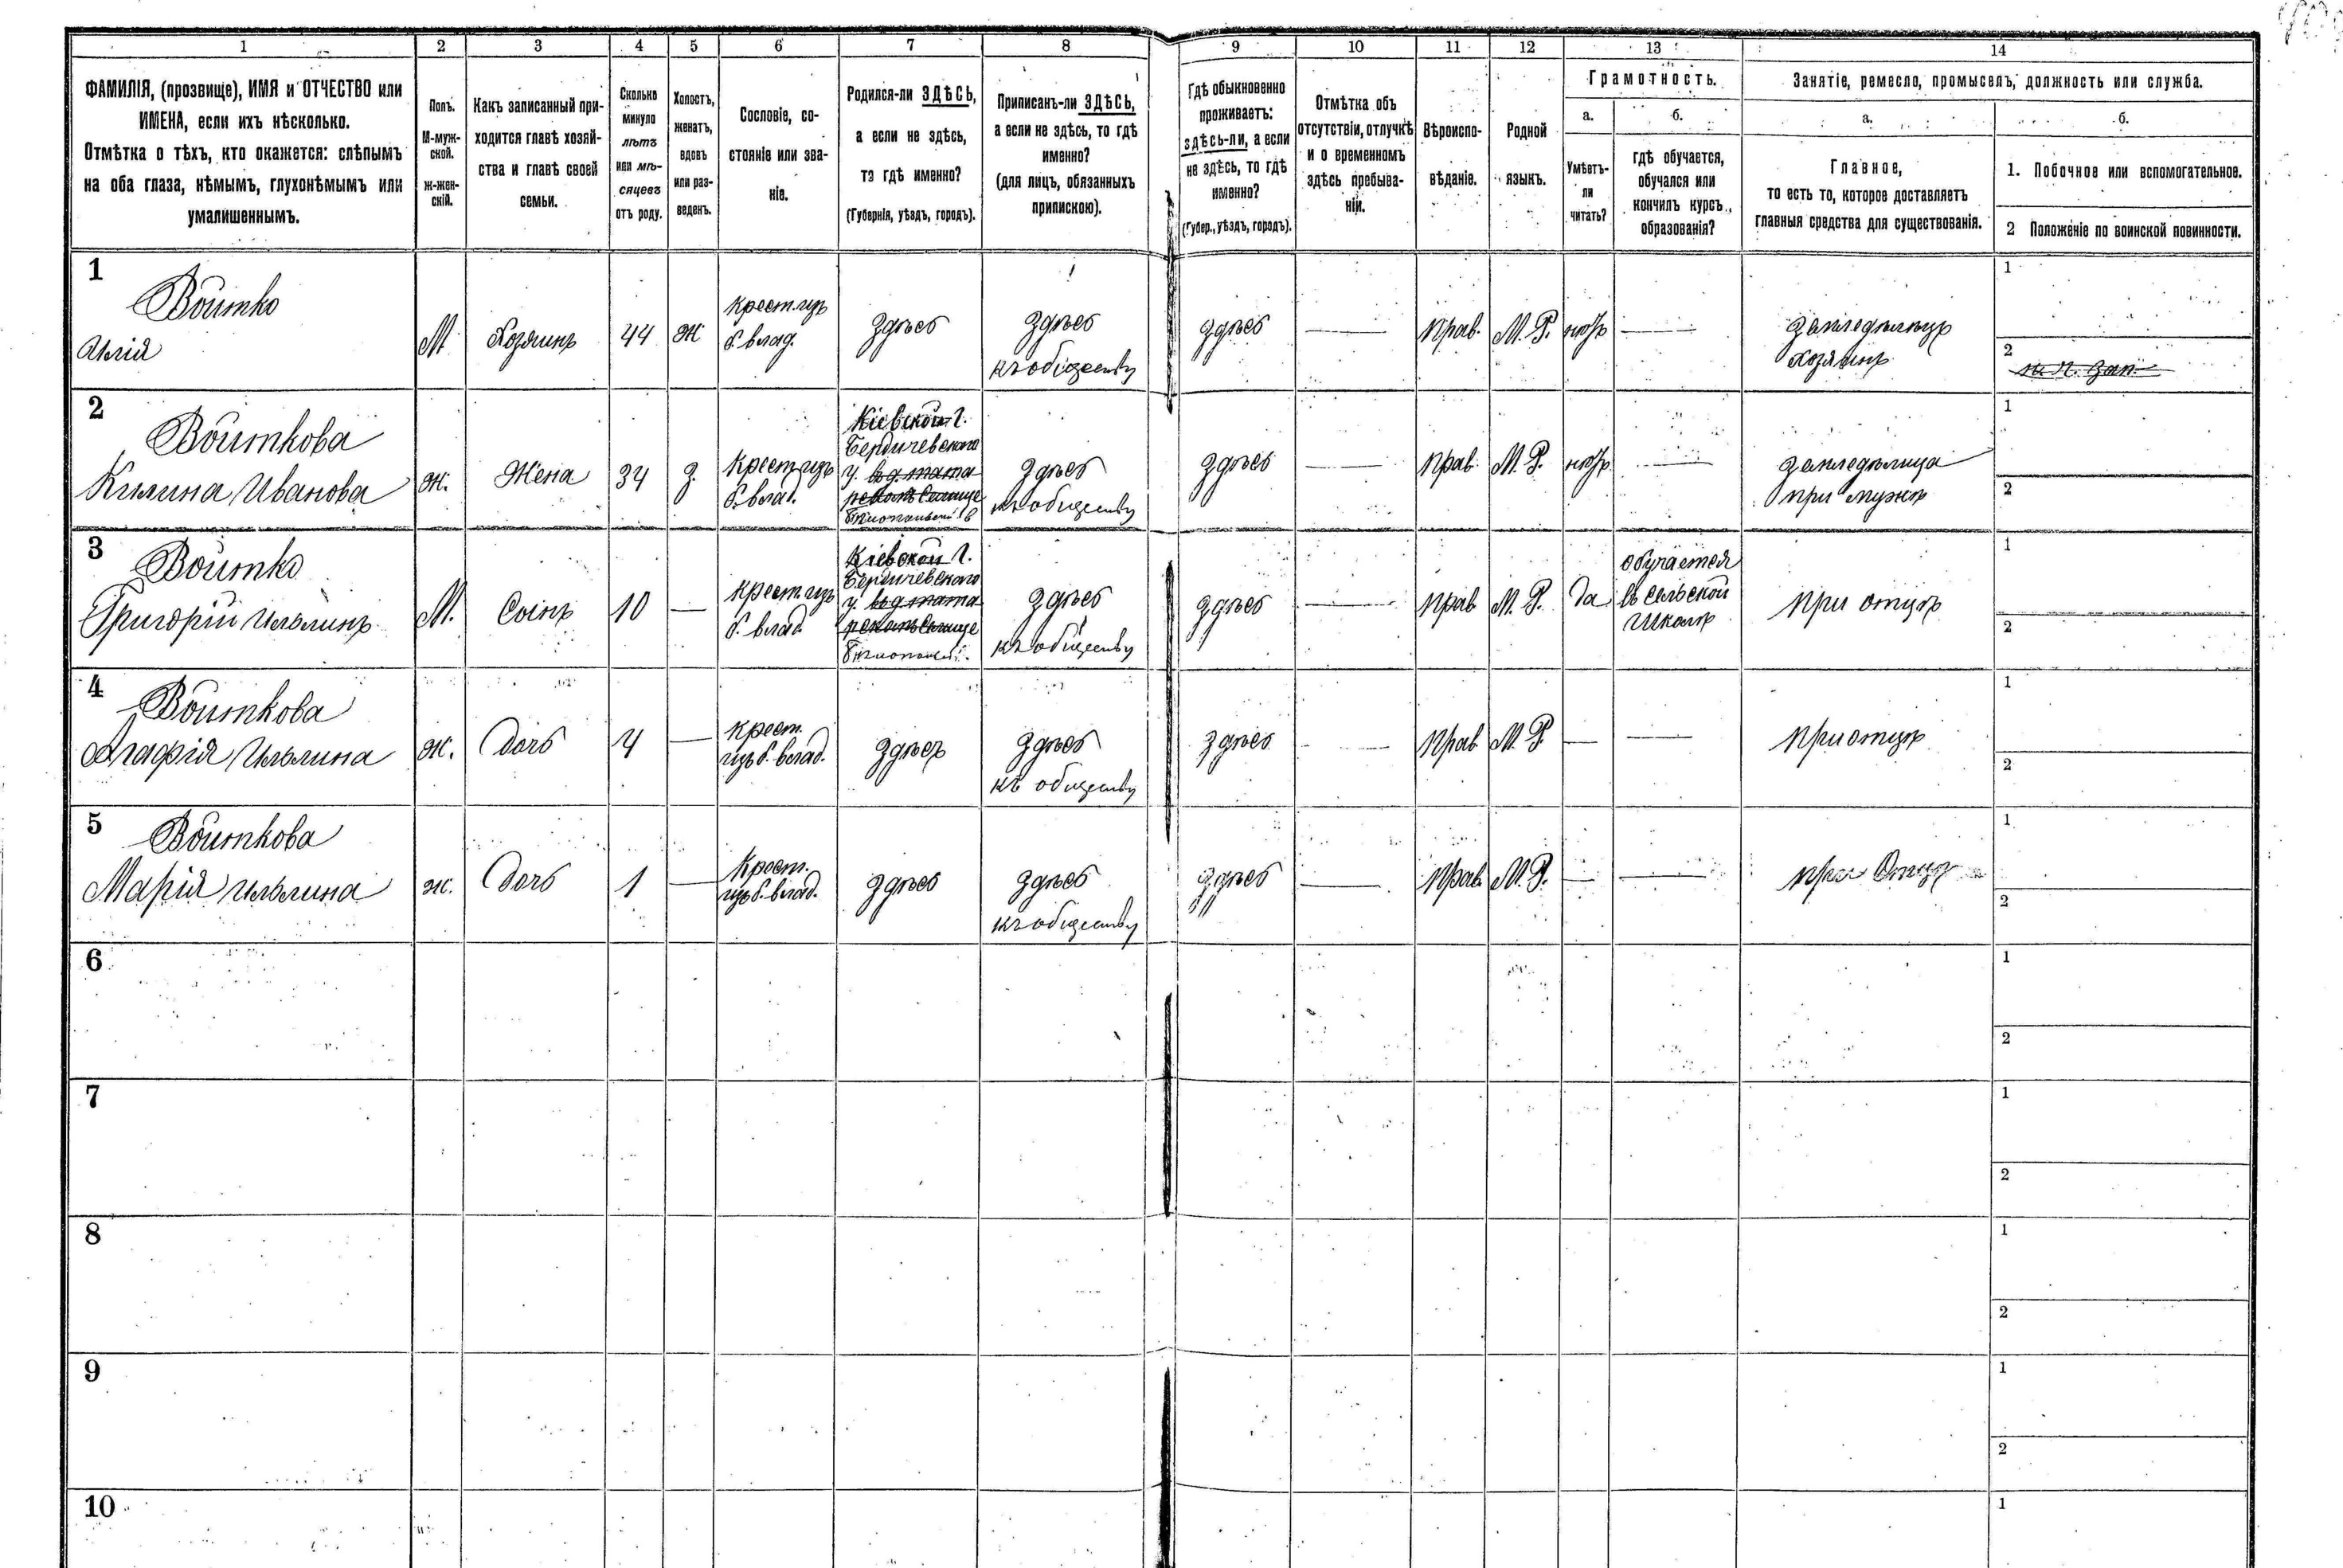 1 2 3 4 5 6 7 8 9 10 11 12 13 14
ФАМИЛІЯ, (прозвище), ИМЯ и ОТЧЕСТВО или
ИМЕНА, если ихъ нѣсколько.
Отмѣтка о тѣхъ, кто окажется: слѣпымъ
на оба глаза, нѣмымъ, глухонѣмымъ или
умалишеннымъ.
Полъ.
М-муж-
ской.
ж-жен-
скій.
Какъ записанный при-
ходится главѣ хозяй-
ства и главѣ своей
семьи.
Сколько
минуло
лѣтъ
или мѣ-
сяцевъ
отъ роду.
Холостъ,
женатъ,
вдовъ
или раз-
веденъ.
Сословіе, со-
стояніе или зва-
ніе.
Родился-ли ЗДѢСЬ,
а если не здѣсь,
то гдѣ именно?
(Губернія, уѣздъ, городъ).
Приписанъ-ли ЗДѢСЬ,
а если не здѣсь, то гдѣ
именно?
(для лицъ, обязанныхъ
припискою).
Гдѣ обыкновенно
проживаетъ:
здѣсь-ли, а если
не здѣсь, то гдѣ
именно?
(Губер., уѣздъ, городъ).
Отмѣтка объ
отсутствіи, отлучкѣ
и о временномъ
здѣсь пребыва-
ніи.
Вѣроиспо-
вѣданіе.
Родной
языкъ.
Грамотность.
а.
Умѣетъ-
ли
читать?
б.
гдѣ обучается,
обучался или
кончилъ курсъ
образованія?
Занятіе, ремесло, промыселъ, должность или служба.
а.
Главное,
то есть то, которое доставляетъ
главныя средства для существованія.
б.
1. Побочное или вспомогательное.
2 Положеніе по воинской повинности.
1
Войтко
Илія
М
Хозяинъ
44
ж
крест. изъ
б. влад.
здѣсь
здѣсь
къ обществу
здѣсь
—
прав.
М. Р.
нѣтъ
—
земледѣлецъ
хозяинъ
1
2
2
Войткова
Килина Иванова
ж.
Жена
34
з.
крест. изъ
б. влад.
Кіевской Г.
Бердичевскаго
у.
здѣсь
къ обществу
здѣсь
—
прав.
М. Р.
нѣтъ
—
земледѣлица
при мужѣ
1
2
3
Войтко
Григорій Ильинъ
М.
Сынъ
10
—
крест. изъ
б. влад.
Кіевской Г.
Бердичевскаго
у.
здѣсь
къ обществу
здѣсь
—
прав
М. Р.
Да
обучается
въ сельской
школѣ
при отцѣ
1
2
4
Войткова
Агафія Ильина
ж.
Дочь
4
—
крест.
изъ б. влад.
здѣсь
здѣсь
къ обществу
здѣсь
—
прав
М. Р.
—
—
при отцѣ
1
2
5
Войткова
Марія Ильина
ж.
Дочь
1
—
крест.
изъ б. влад.
здѣсь
здѣсь
къ обществу
здѣсь
—
прав.
М. Р.
—
—
при Отцѣ
1
2
6
1
2
7
1
2
8
1
2
9
1
2
10
1